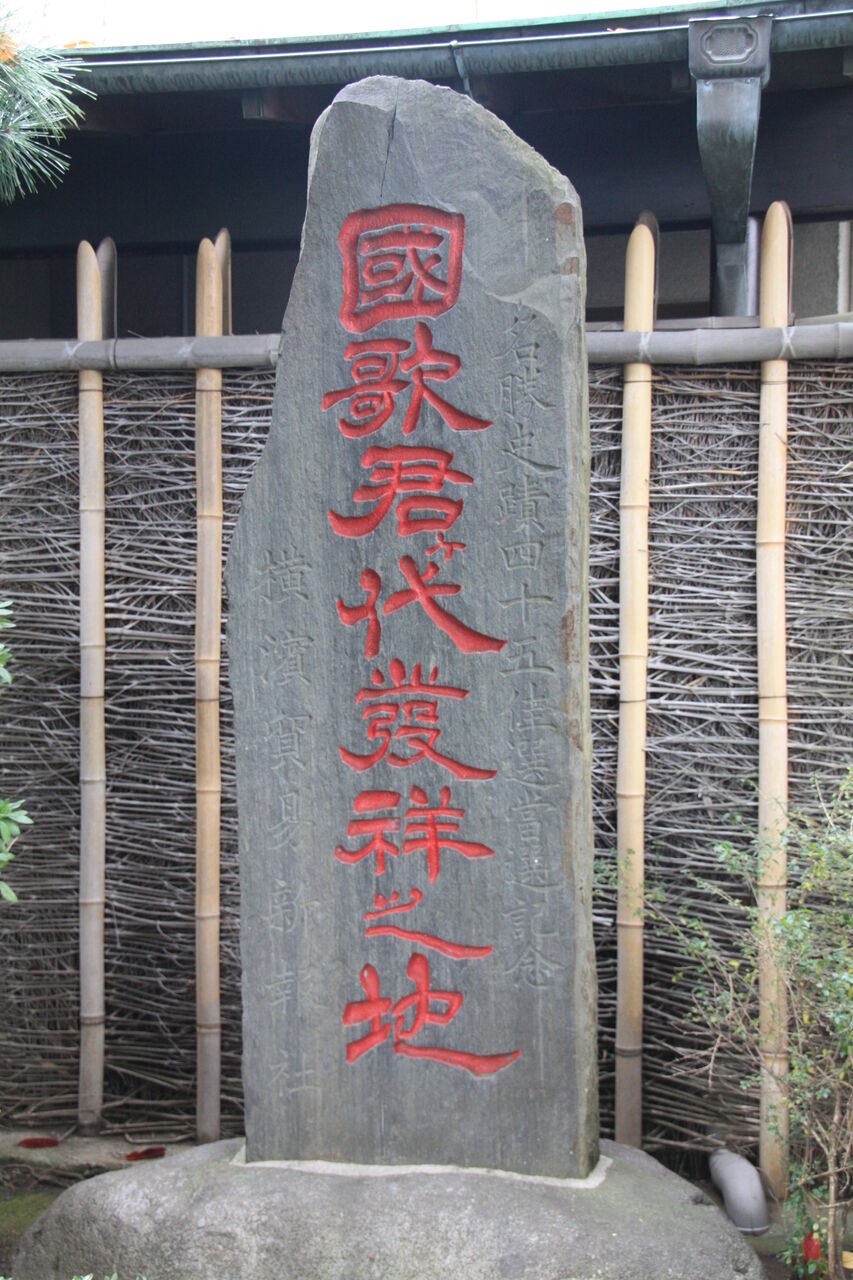 名勝史蹟四十五佳選當選記念
國歌君ヶ代發祥之地
横濱貿易新報社